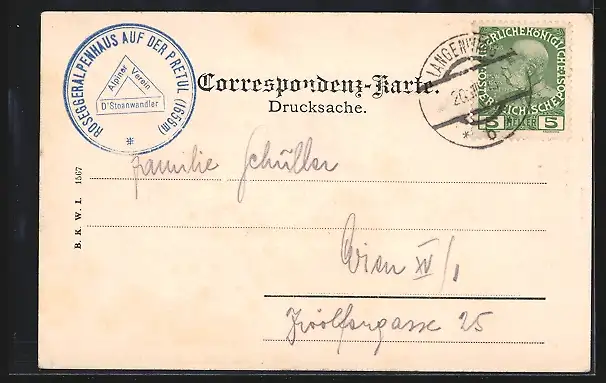 ROSEGGERALPENHAUS AUF DER PRETUL (1656m)
Alpiner Verein
D'Stoanwandler
Correspondenz-Karte.
Drucksache.
LANGENW
20
b
KAISERLICHE KÖNIGLICHE ÖSTERREICHISCHE
5 HELLER 5
Familie Schüller
Wien XV/1
Zwölfergasse 25
B. K. W. I. 1567